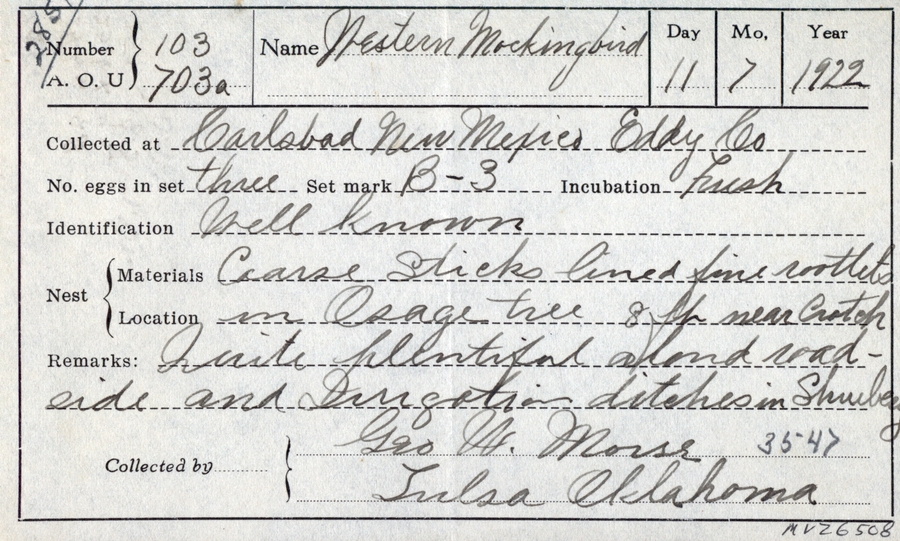 285
Number 103 Name Western Mockingbird Day Mo, Year
A. O. U 703a 11 7 1922
Collected at Carlsbad New Mexico Eddy Co
No. eggs in set three Set mark B-3 Incubation Fresh
Identification Well known
Nest Materials Coarse Sticks lined fine rootlets
Location in Osage tree 8 ft near Crotch
Remarks: Quite plentiful along road-
side and Irrigation ditches in Shrubery
Geo W. Morse 3547
Collected by
Tulsa Oklahoma
MVZ6508